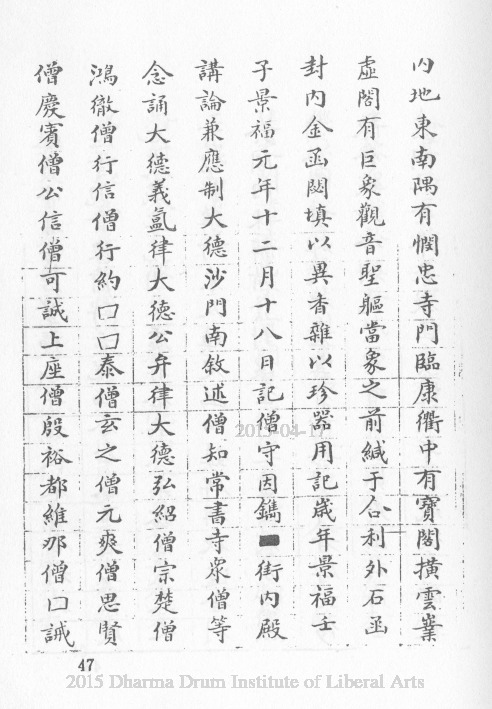 內地東南隅有憫忠寺門臨康衢中有寶閣橫雲業
虛閣有巨象觀音聖軀當象之前緘于合利外石函
封內金函閟填以異香雜以珍器用記歲年景福壬
子景福元年十二月十八日記僧守因鐫▬街內殿
講論兼應制大德沙門南敘述僧知常書寺眾僧等
念誦大德義氳律大德公弁律大德弘紹僧宗楚僧
鴻徹僧行信僧行約口口泰僧玄之僧元爽僧思賢
僧慶賓僧公信僧可誠上座僧殷裕都維那僧口誡
47
2015-04-17
2015 Dharma Drum Institute of Liberal Arts